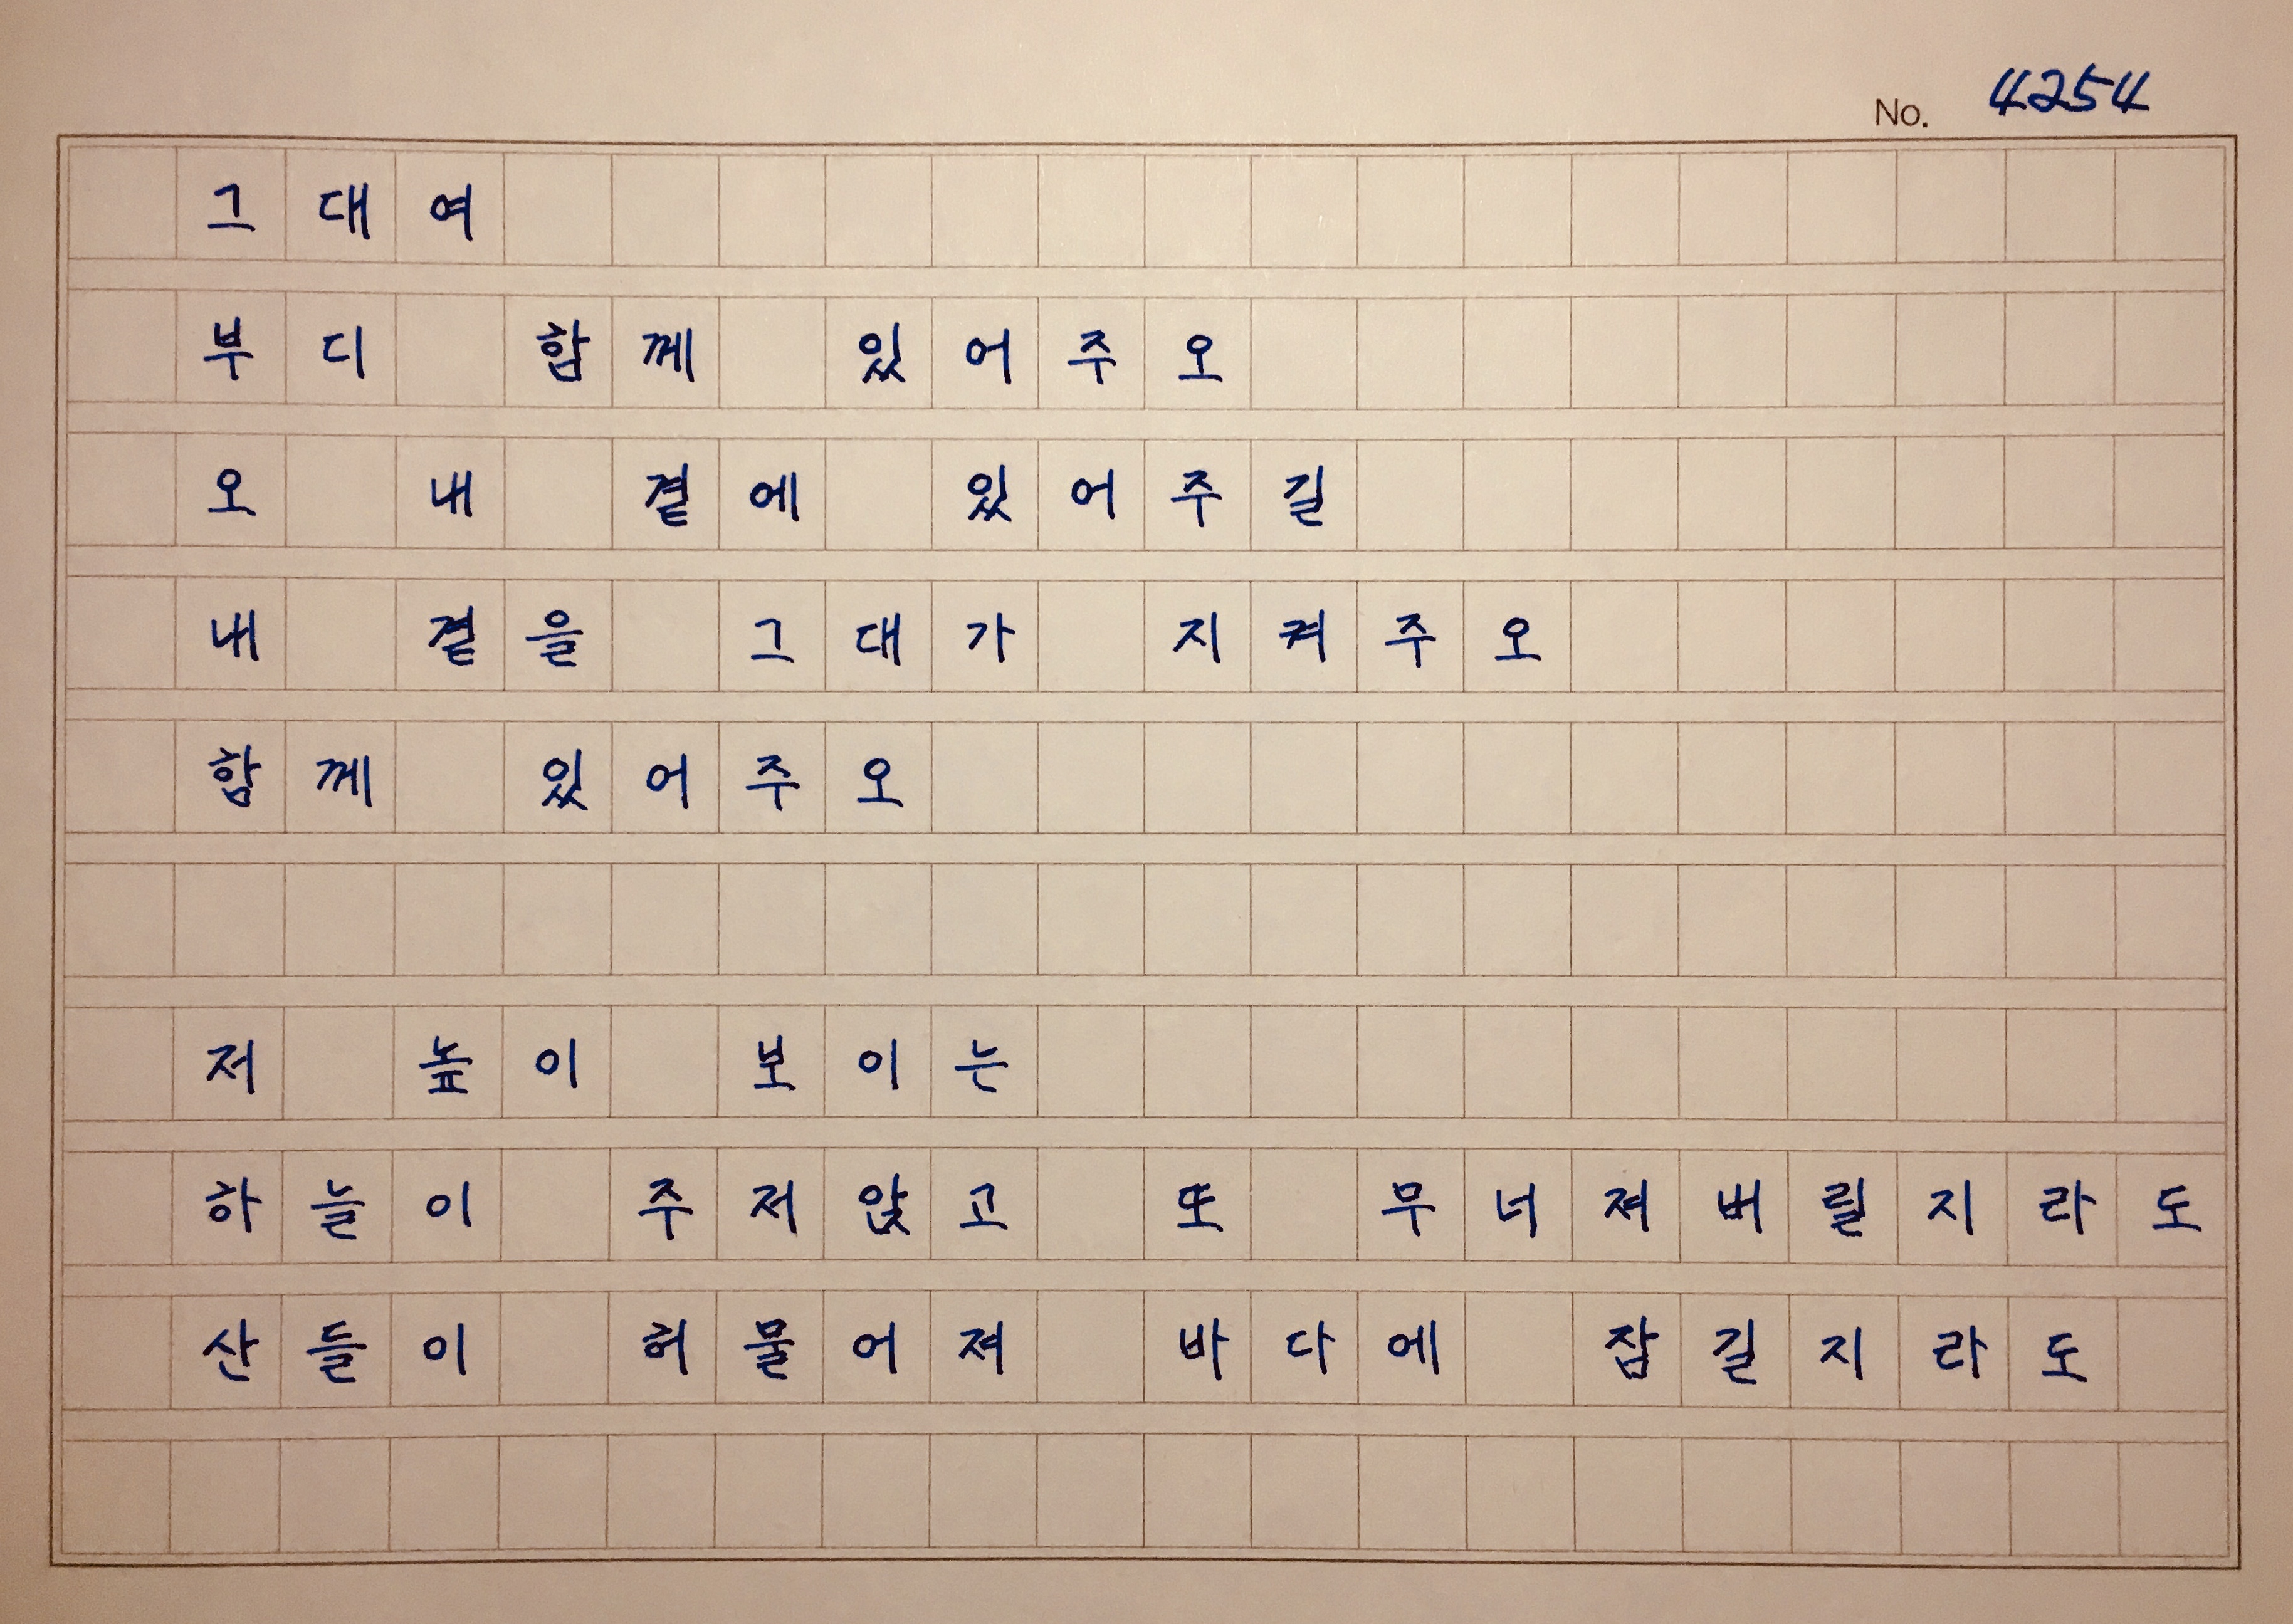 No. 4254
그대여
부디 함께 있어주오
오 내 곁에 있어주길
내 곁을 그대가 지켜주오
함께 있어주오
저 높이 보이는
하늘이 주저앉고 또 무너져버릴지라도
산들이 허물어져 바다에 잠길지라도